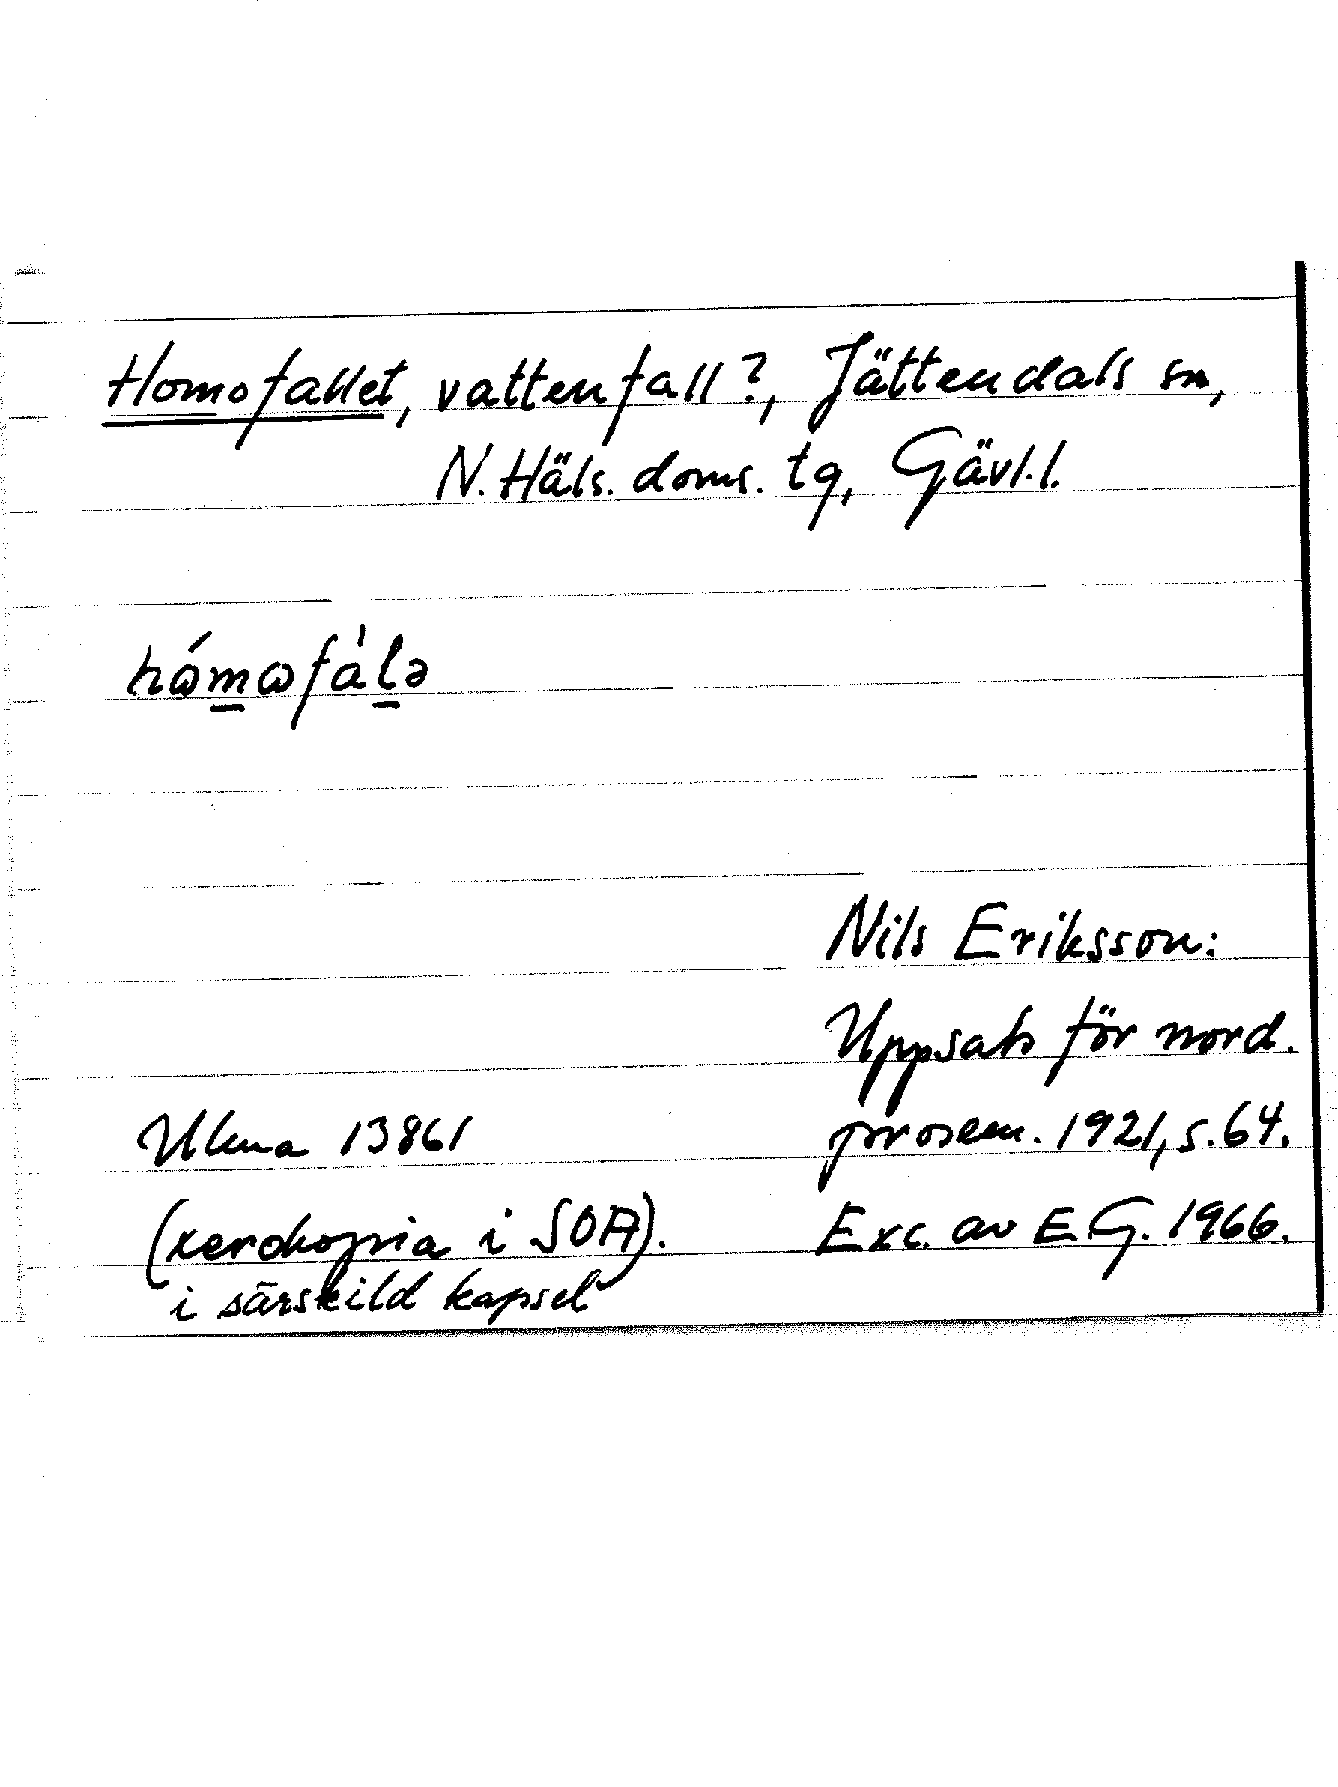 Homofallet, vattenfall?, Jättendals sn,
N. Häls. doms. tg, Gävl. l.
hɷ́m̲ɷfàl̲ə
Nils Eriksson:
Uppsats för nord.
prosem. 1921, s. 64.
Ulma 13861
(xerokopia i SOA).
i särskild kapsel
Exc. av E G. 1966.